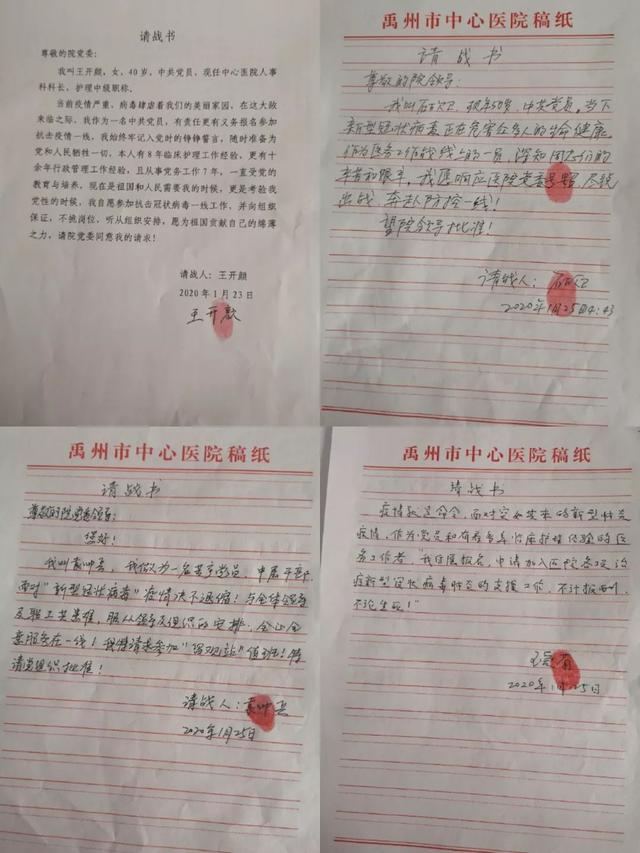 请战书
尊敬的院党委：
我叫王开颜，女，40岁，中共党员，现任中心医院人事
科科长，护理中级职称。
当前疫情严重，病毒肆虐着我们的美丽家园，在这大敌
来临之际，我作为一名中共党员，有责任更有义务报名参加
抗击疫情一线，我始终牢记入党时的铮铮誓言，随时准备为
党和人民牺牲一切，本人有8年临床护理工作经验，更有十
余年行政管理工作经验，且从事党务工作7年，一直受党的
教育与培养，现在是祖国和人民需要我的时候，更是考验我
党性的时候，我自愿参加抗击冠状病毒一线工作，并向组织
保证，不挑岗位，听从组织安排，愿为祖国贡献自己的绵薄
之力，请院党委同意我的请求！
请战人：王开颜
2020年1月23日
王开颜
禹州市中心医院稿纸
请战书
尊敬的院领导：
我叫 现年50岁，中共党员，当下
新型冠状病毒正在危害众多人的生命健康，
作为医务工作战线上的一员，深知同志们的
辛苦和艰辛，我愿响应医院党委号召，尽锐
出战，奔赴防控一线！
望院领导批准！
请战人：
2020年1月25日4:43
禹州市中心医院稿纸
请战书
尊敬的院党委领导：
您好！
我叫 ，我做为一名共产党员，中层干部，
面对“新型冠状病毒”疫情决不退缩！与全体领导
及职工共患难，服从领导及组织的安排，全心全
意服务在一线！我申请参加“ ”值班！
请党组织批准！
请战人：
2020年1月25日
禹州市中心医院稿纸
请战书
疫情就是命令，面对突如其来的新型肺炎
疫情，作为党员和有着多年临床护理经验的医
务工作者，“我自愿报名，申请加入医院参与治
疗新型冠状病毒肺炎的支援工作，不计报酬，
不论生死！”
2020年1月25日